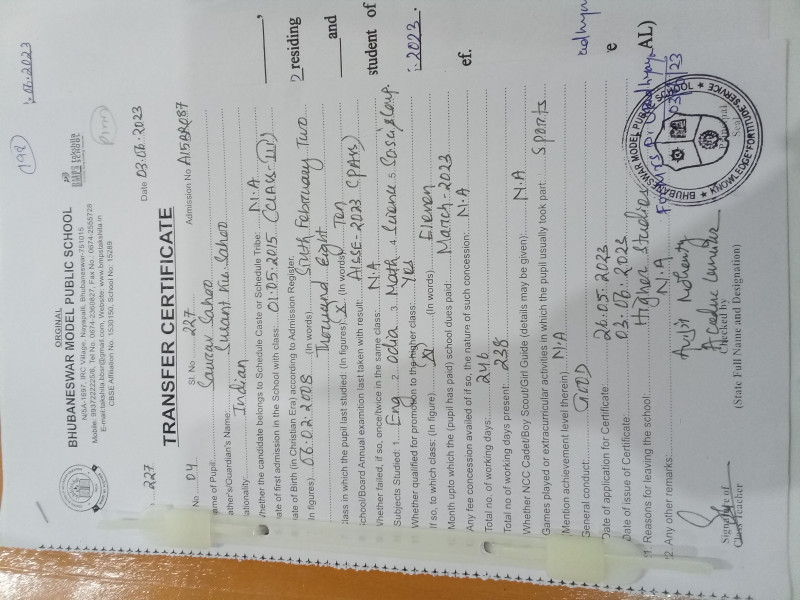 ORGINAL
BHUBANESWAR MODEL PUBLIC SCHOOL
N/5A-1697, IRC Village, Nayapalli, Bhubaneswar-751015
CBSE Affiliation No. 1530150, School No: 15289
BMPS takshila
227
Date 03.06.2023
TRANSFER CERTIFICATE
No 04 Sl. No 227 Admission No A15BR087
ame of Pupil: Saurav Sahoo
ather's/Guardian's Name: Susant Ku. Sahoo
ationality: Indian
hether the candidate belongs to Schedule Caste or Schedule Tribe: N.A
ate of first admission in the School with class: 01.05.2015 (CLASS-III)
ate of Birth (in Christian Era) according to Admission Register.
In figures) 06.02.2008 (In words) Sixth February Two
Thousand Eight
lass in which the pupil last studied: (In figures) X (In words) Ten
chool/Board Annual examition last taken with result: AISSE-2023 (PASS)
hether failed, if so, once/twice in the same class: N.A
Subjects Studied: 1. Eng 2. Odia 3. Math 4. Science 5. So.Sci
Whether qualified for promotion to the higher class: Yes
If so, to which class: (In figure) (XI) (In words) Eleven
Month upto which the (pupil has paid) school dues paid: March-2023
Any fee concession availed of if so, the nature of such concession: N.A
Total no. of working days: 246
Total no of working days present: 238
Whether NCC Cadet/Boy Scout/Girl Guide (details may be given): N.A
Games played or extracurricular activities in which the pupil usually took part: Sports
(Mention achievement level herein) N.A
General conduct: GOOD
Date of application for Certificate: 26.05.2023
Date of issue of Certificate: 03.06.2023
1. Reasons for leaving the school: Higher Studies
2. Any other remarks: N.A
Signature of
Class Teacher
Checked by
(State Full Name and Designation)
Principal
Seal
BHUBANESWAR MODEL PUBLIC SCHOOL
KNOWLEDGE FORTITUDE SERVICE
residing
and
student of
2023.
ef.
AL)